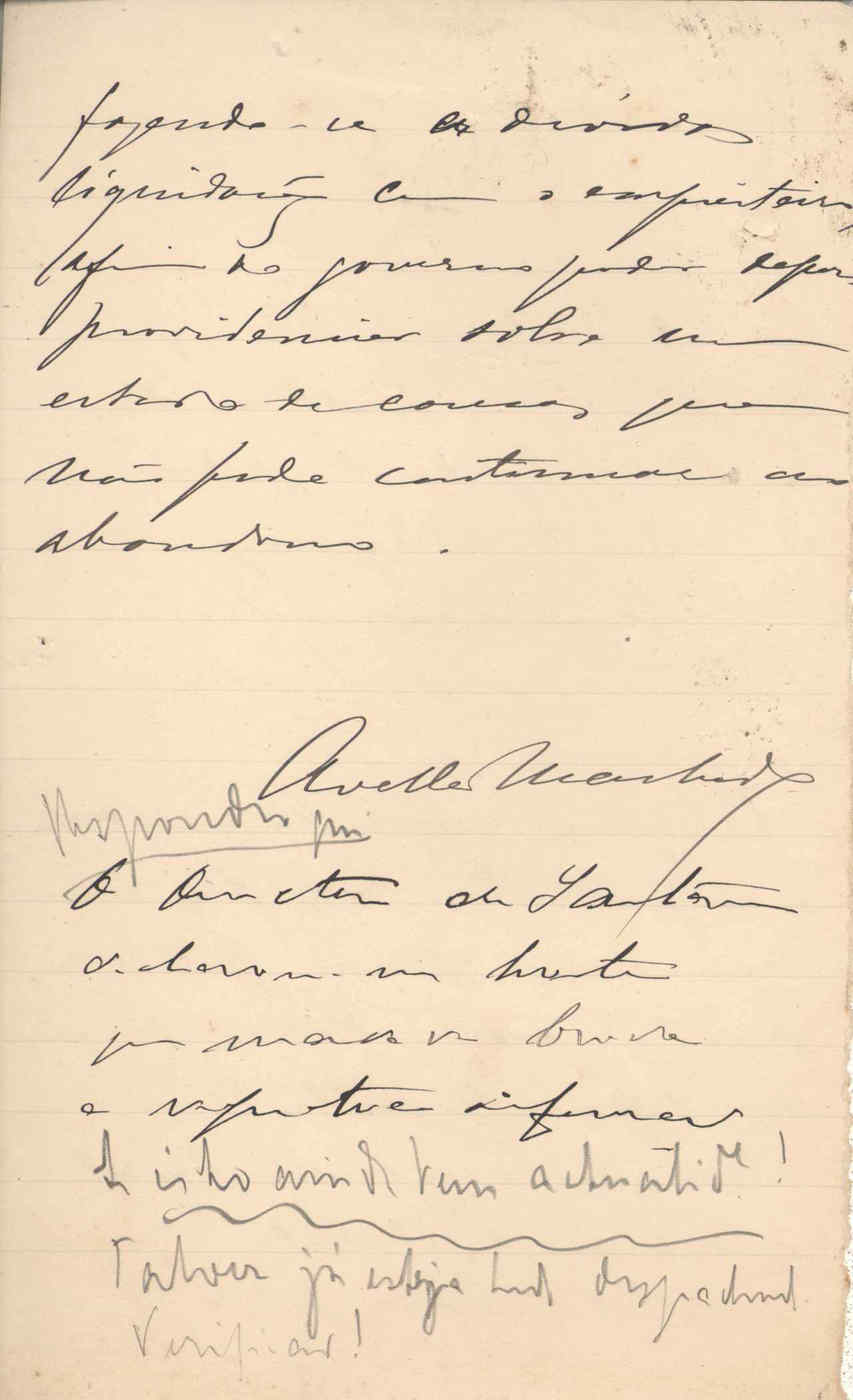 fazendo-se as devidas
liquidações com o empreiteiro,
afim do governo poder depois
providenciar sobre um
estado de cousas que
não pode continuar ao
abandono.
Avellar Machado
Respondeu que
O Director de
que mandava
a respectiva informação
Se isto ainda tem actualide!
Talvez já esteja tudo despachado
Verificar!